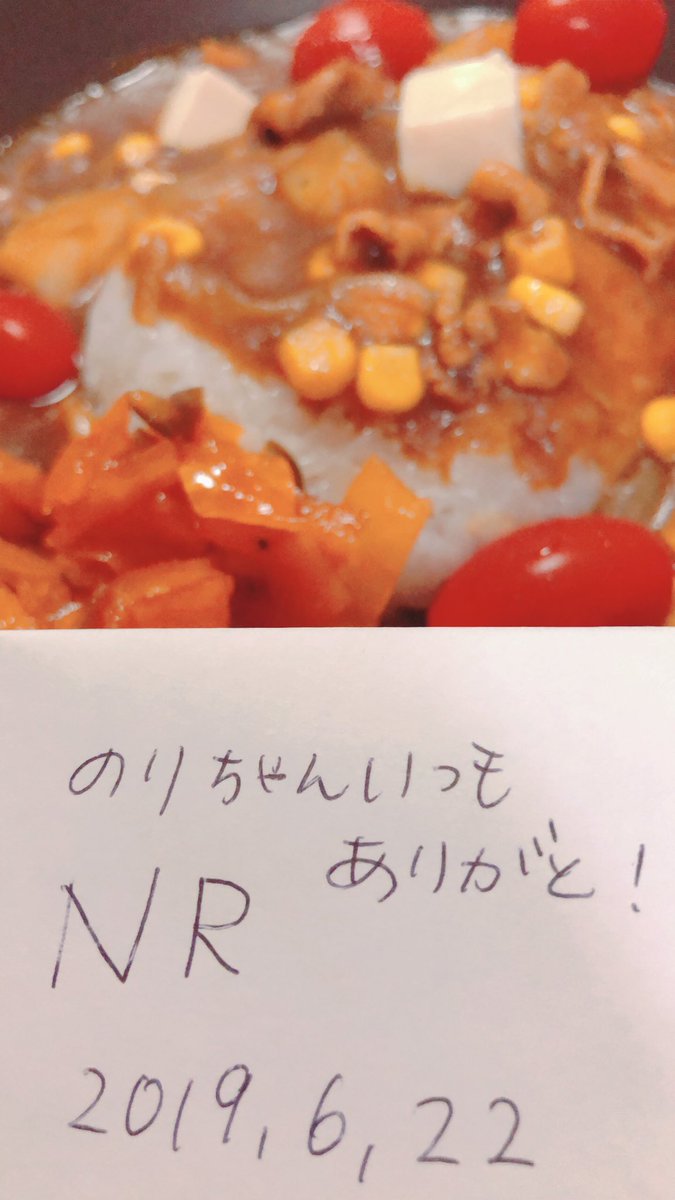 のりちゃんいつも
ありがと!
NR
2019,6,22